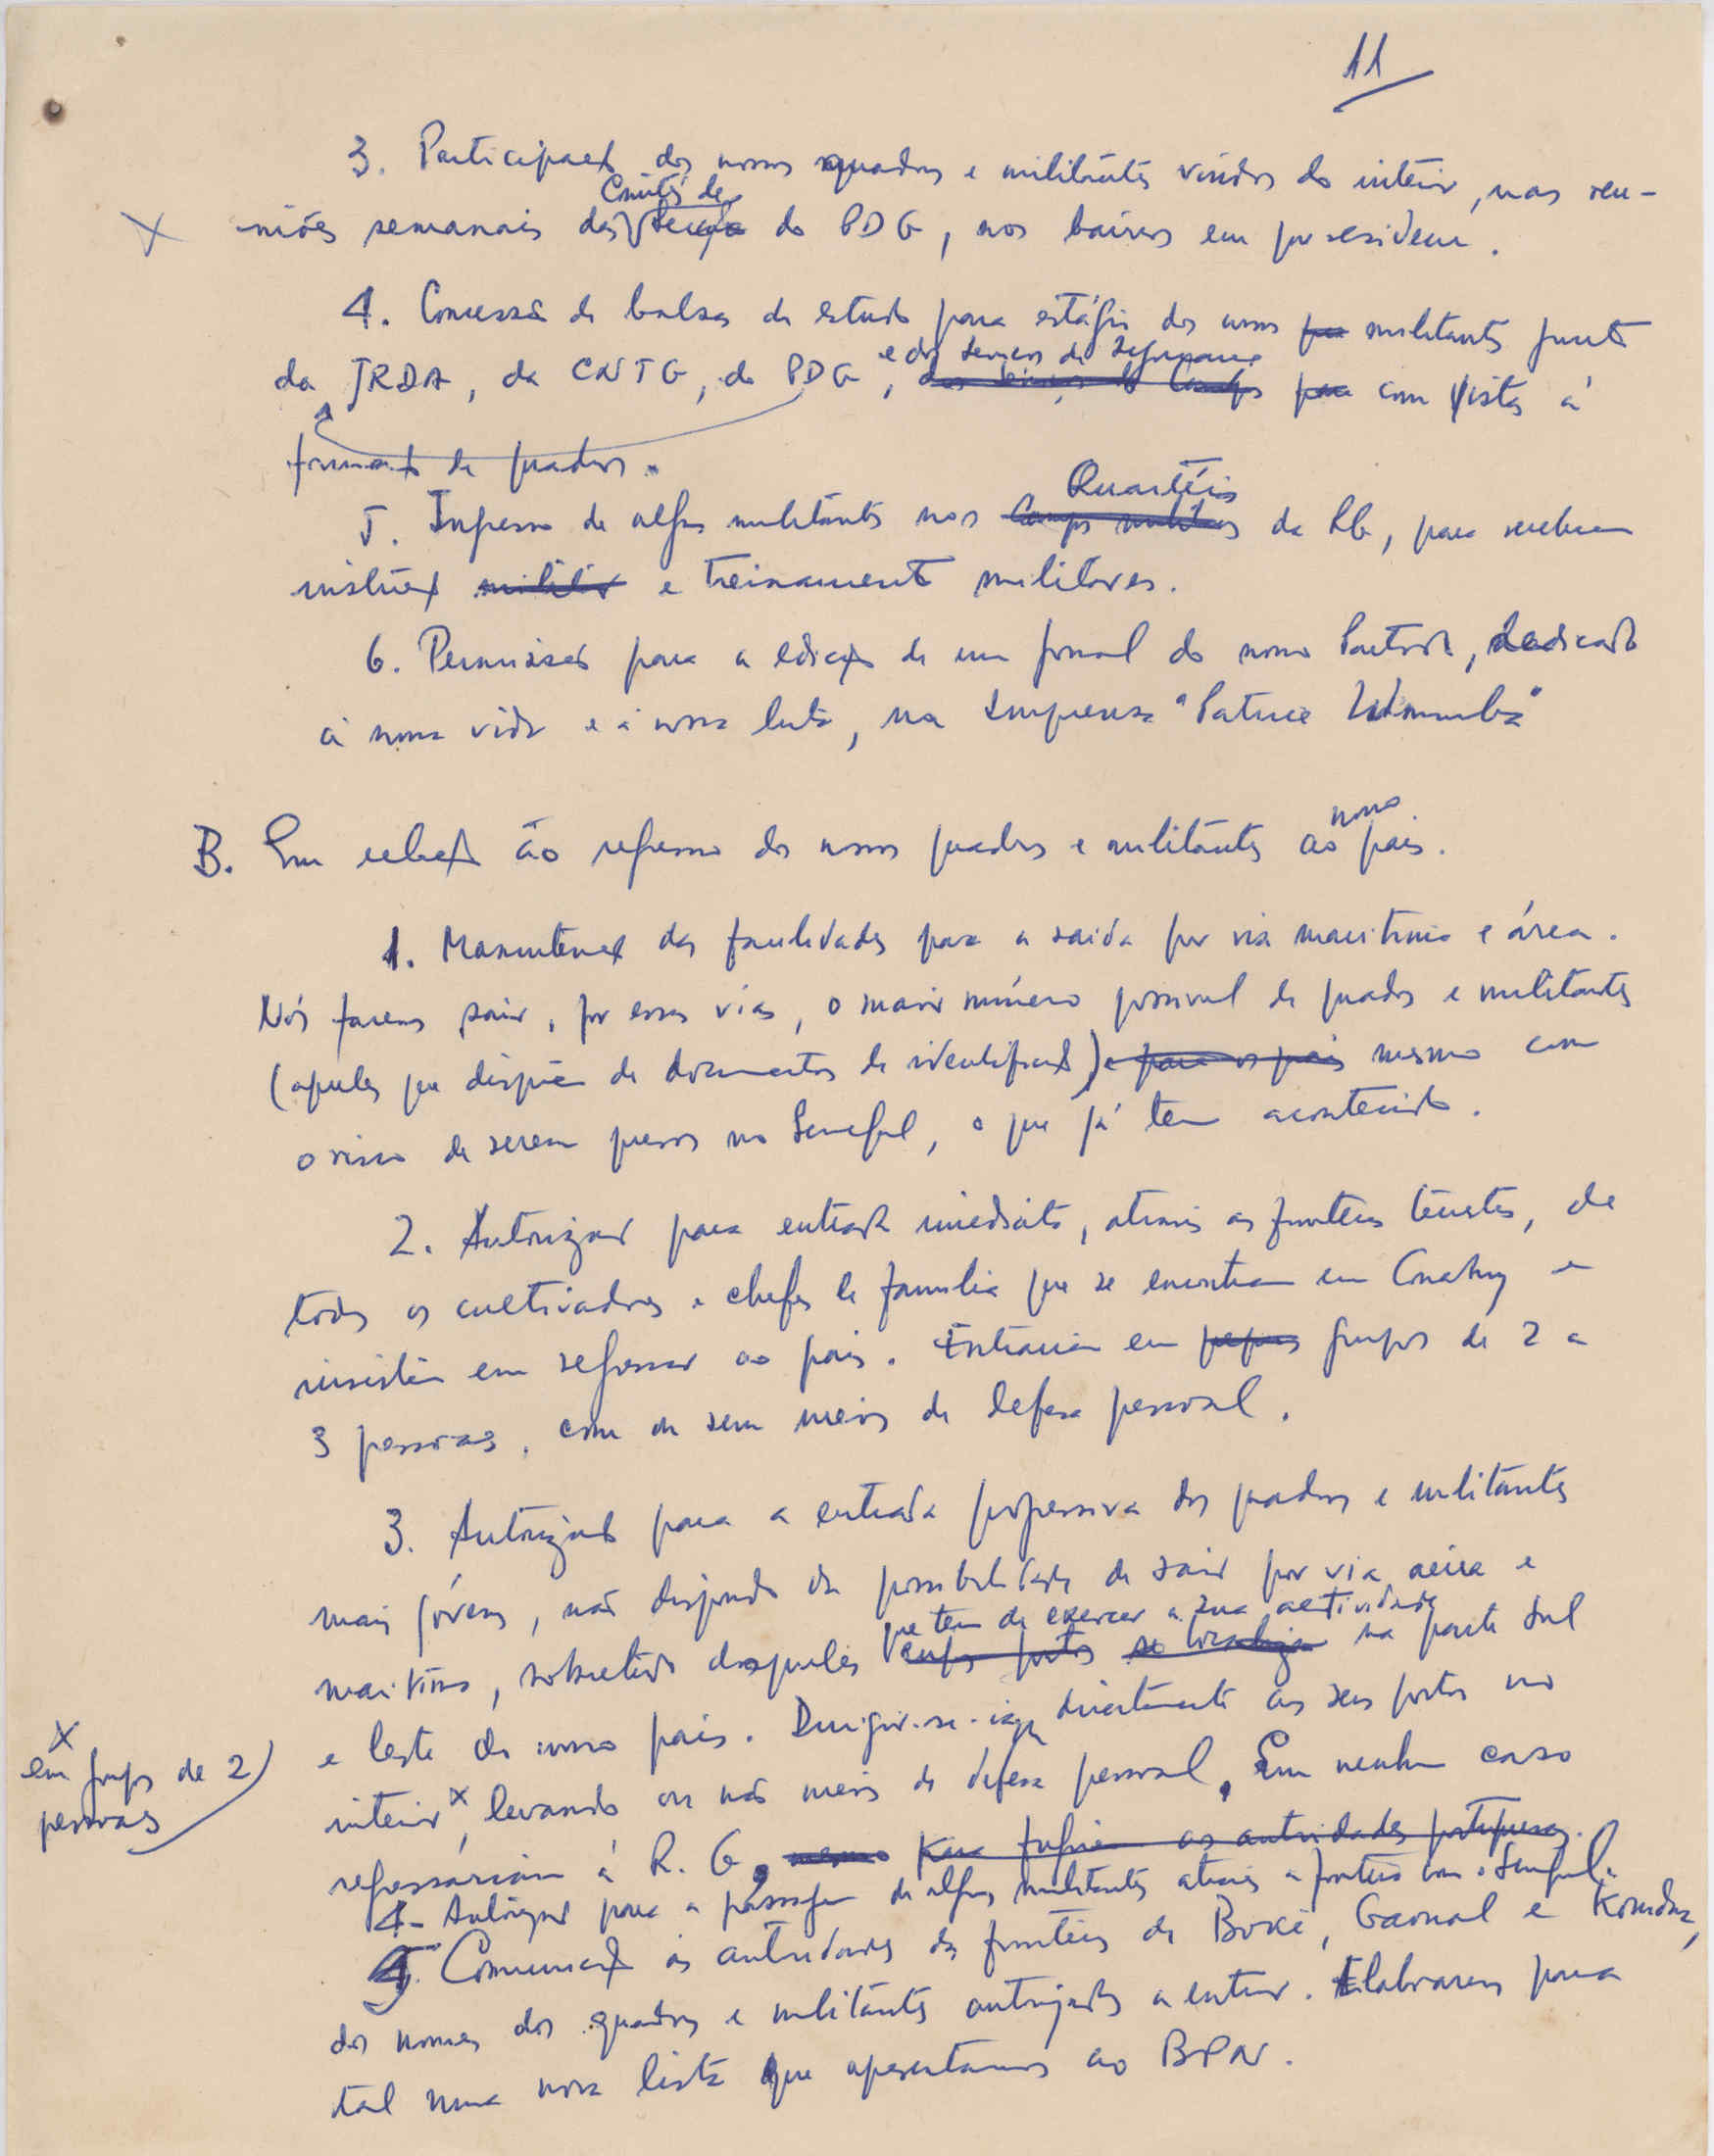 11
3. Participação dos nossos quadros e militantes vindos do interior, nas reu-
X niões semanais dos Comités de do PDG, nos bairros em que residem.
4. Concessão de bolsas de estudo para estágio dos nossos militantes junto
da JRDA, da CNTG, do PDG, e dos Serviços de Segurança com vista à
formação de quadros.
5. Ingresso de alguns militantes nos Quartéis da RG, para receberem
instrução militar e treinamento militares.
6. Permissão para a edição de um jornal do nosso Partido, dedicado
à nossa vida e à nossa luta, na Imprensa "Patrice Lumumba"
B. Em relação ao regresso dos nossos quadros e militantes ao nosso país.
1. Manutenção das facilidades para a saída por via marítima e área.
Nós faremos sair, por essas vias, o maior número possível de quadros e militantes
(aqueles que dispõem de documentos de identificação) e para os país mesmo com
o risco de serem presos no Senegal, o que já tem acontecido.
2. Autorização para entrada imediata, através as fronteiras terrestres, de
todos os cultivadores e chefes de família que se encontram em Conakry e
insistem em regressar ao país. Entrariam em grupos de 2 a
3 pessoas, com ou sem meios de defesa pessoal.
3. Autorização para a entrada progressiva dos quadros e militantes
mais jóvens, não dispondo da possibilidade de sair por via aérea e
marítima, sobretudo daqueles que tem de exercer a sua actividade na parte Sul
e leste do nosso país. Dirigir-se-iam directamente aos seus postos no
interior X, levando ou não meios de defesa pessoal. Em nenhum caso
X em grupos de 2
pessoas
regressariam à R. G. mesmo para fugirem as autoridades portuguesas.
4- Autorização para a passagem de alguns militantes através a fronteira com o Senegal.
5. Comunicação às autoridades das fronteiras de Boké, Gaoual e Koundara,
dos nomes dos quadros e militantes autorizados a entrar. Elaboraremos para
tal uma nova lista que apresentamos ao BPN.